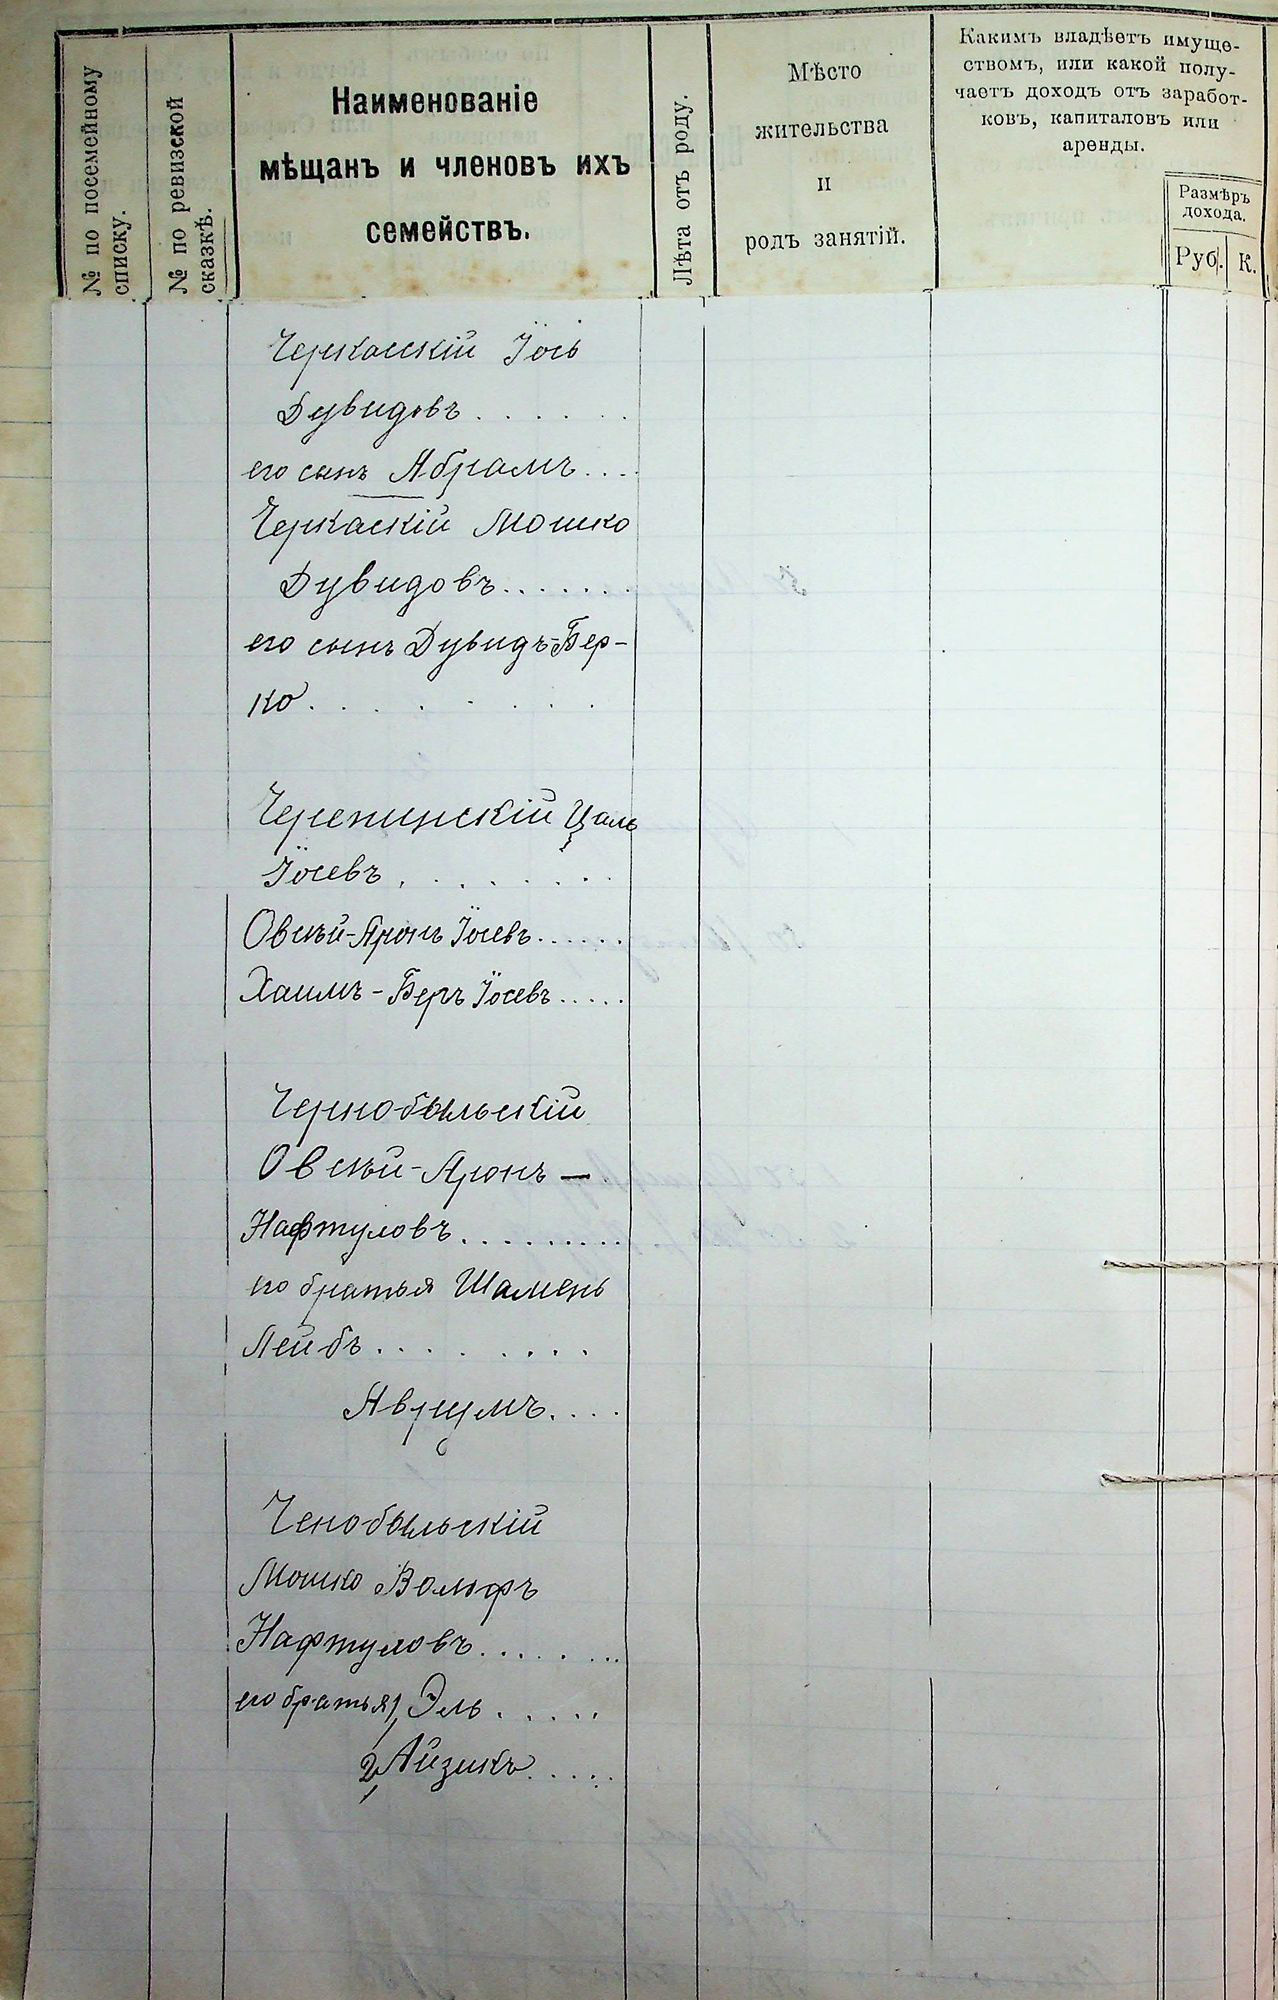 № по посемейному
списку.
№ по ревизской
сказкѣ.
Наименованіе
мѣщанъ и членовъ ихъ
семействъ.
Лѣта отъ роду.
Мѣсто
жительства
и
родъ занятій.
Какимъ владѣетъ имуще-
ствомъ, или какой полу-
чаетъ доходъ отъ заработ-
ковъ, капиталовъ или
аренды.
Размѣръ
дохода.
Руб. К.
Черкасскій Іось
Дувидовъ . . . . . .
его сынъ Абрамъ . . . .
Черкаскій Мошко
Дувидовъ . . . . . . .
его сынъ Дувидъ-Бер-
ко . . . . . . . . .
Черепинскій Цаль
Іосевъ . . . . . . . .
Овсѣй-Аронъ Іосевъ . . . . . .
Хаимъ-Беръ Іосевъ . . . . .
Чернобыльскій
Овсѣй-Аронъ —
Нафтуловъ . . . . . . . . .
его братья Шамень
Лейбъ . . . . . . . .
Аврумъ . . . .
Ченобыльскій
Мошко Вольфъ
Нафтуловъ . . . . . . . .
его братья 1, Эль . . . . .
2, Айзикъ . . . . .